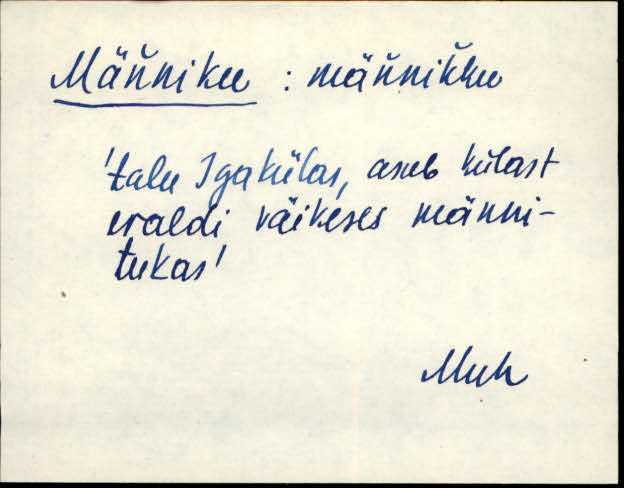 Mäňniku : mäňnikku
'talu Igakülas, aseb külast
eraldi väikeses männi-
tukas'
Muh